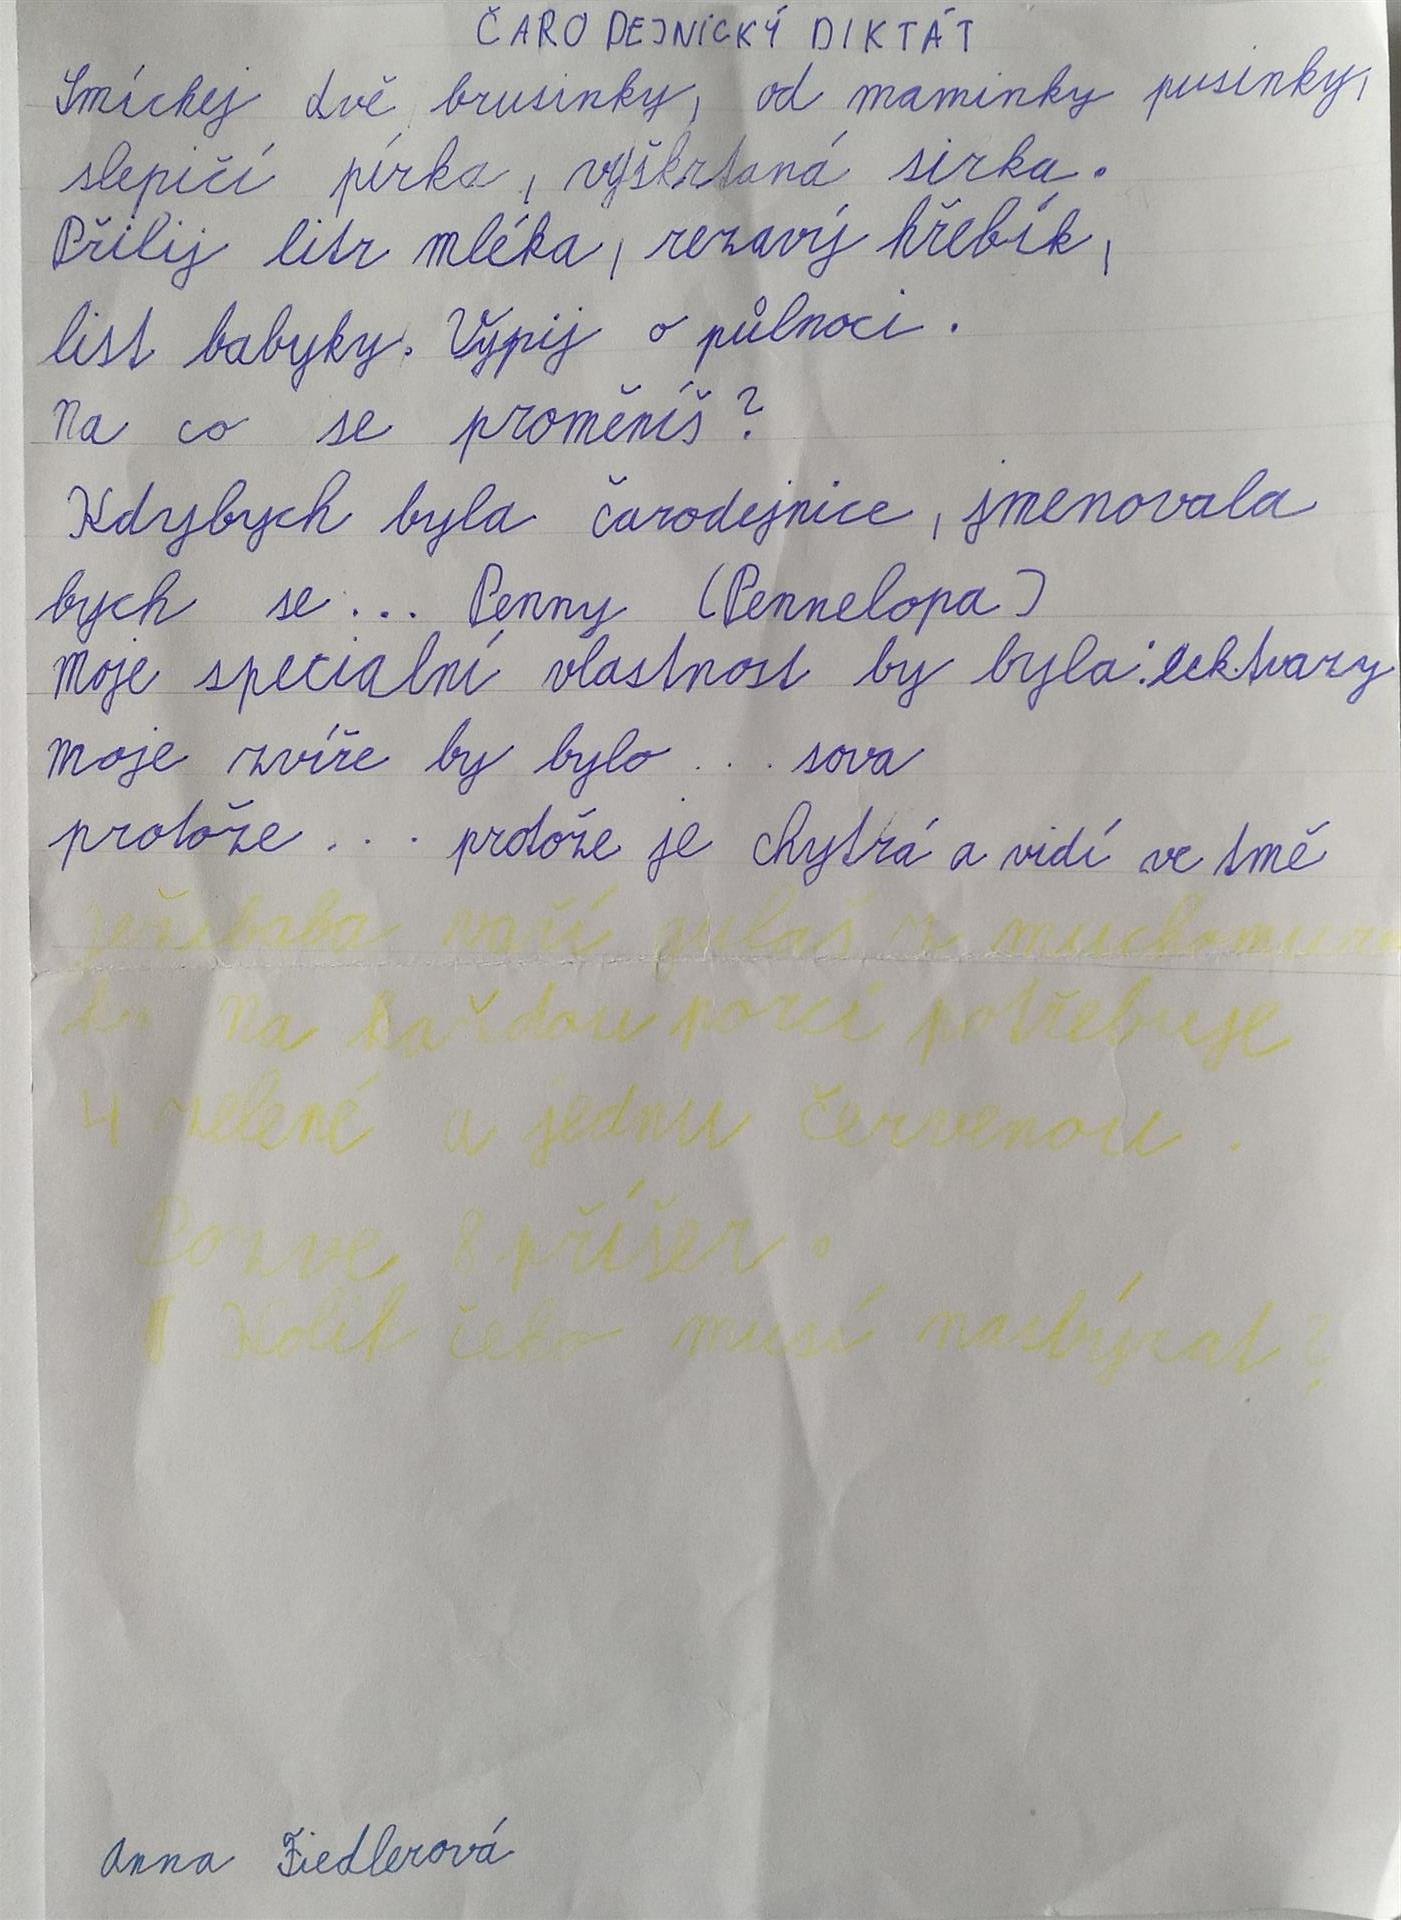 ČARODEJNICKÝ DIKTÁT
Smíchej dvě brusinky, od maminky pusinky,
slepičí pírka, vyškrtaná sirka.
Přilij litr mléka, rezavý hřebík,
list babyky. Vypij o půlnoci.
Na co se proměníš?
Kdybych byla čarodejnice, jmenovala
bych se... Penny (Pennelopa)
Moje specialní vlastnost by byla: lektvary
moje zvíře by bylo ... sova
protože ... protože je chytrá a vidí ve tmě
ježibaba vaří guláš z muchomurek
Na každou porci potřebuje
4 zelené a jednu červenou.
Pozve 8 příšer.
Kolik čeho musí nasbýrat?
Anna Fiedlerová